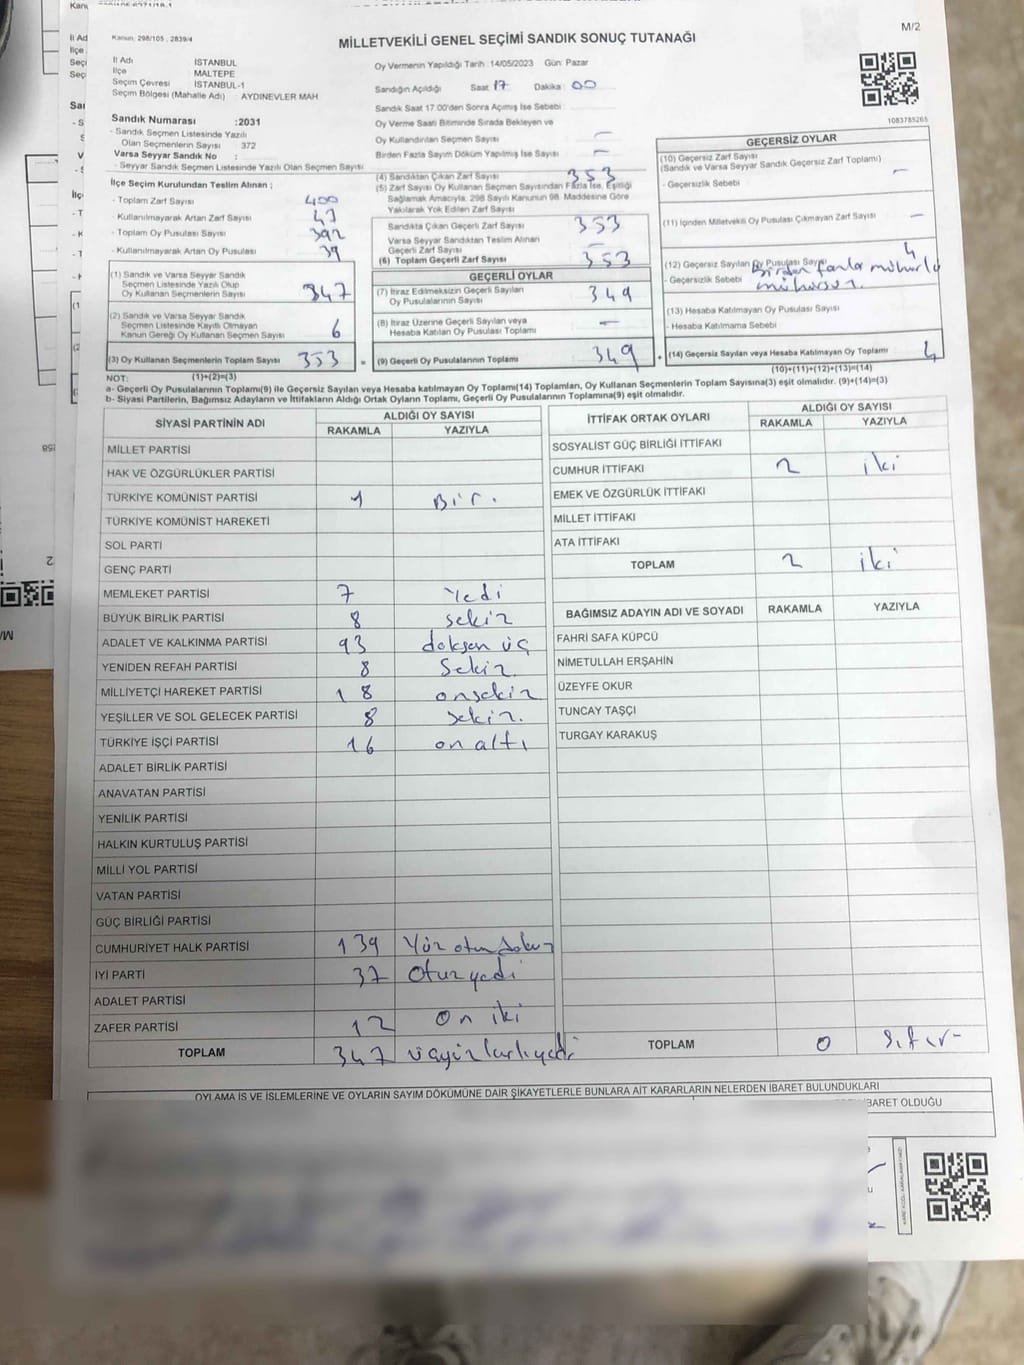 Kanun, 298/105 , 2839/4
M/2
MİLLETVEKİLİ GENEL SEÇİMİ SANDIK SONUÇ TUTANAĞI
İl Adı İSTANBUL
İlçe MALTEPE
Seçim Çevresi İSTANBUL-1
Seçim Bölgesi (Mahalle Adı) : AYDINEVLER MAH
Oy Vermenin Yapıldığı Tarih :14/05/2023 Gün: Pazar
Sandığın Açıldığı Saat 17 Dakika : 00
Sandık Saat 17.00'den Sonra Açımış İse Sebebi :
Oy Verme Saati Bitiminde Sırada Bekleyen ve
Oy Kullandırılan Seçmen Sayısı —
Birden Fazla Sayım Döküm Yapılmış İse Sayısı —
1083785265
Sandık Numarası :2031
- Sandık Seçmen Listesinde Yazılı
Olan Seçmenlerin Sayısı 372
Varsa Seyyar Sandık No :
- Seyyar Sandık Seçmen Listesinde Yazılı Olan Seçmen Sayısı
İlçe Seçim Kurulundan Teslim Alınan ;
- Toplam Zarf Sayısı 400
- Kullanılmayarak Artan Zarf Sayısı
- Toplam Oy Pusulası Sayısı 392
- Kullanılmayarak Artan Oy Pusulası 39
(1) Sandık ve Varsa Seyyar Sandık
Seçmen Listesinde Yazılı Olup
Oy Kullanan Seçmenlerin Sayısı 347
(2) Sandık ve Varsa Seyyar Sandık
Seçmen Listesinde Kayıtlı Olmayan
Kanun Gereği Oy Kullanan Seçmen Sayısı 6
(3) Oy Kullanan Seçmenlerin Toplam Sayısı 353 =
(1)+(2)=(3)
(4) Sandıktan Çıkan Zarf Sayısı 353
(5) Zarf Sayısı Oy Kullanan Seçmen Sayısından Fazla İse, Eşitliği
Sağlamak Amacıyla, 298 Sayılı Kanunun 98. Maddesine Göre
Yakılarak Yok Edilen Zarf Sayısı
Sandıkta Çıkan Geçerli Zarf Sayısı 353
Varsa Seyyar Sandıktan Teslim Alınan
Geçerli Zarf Sayısı —
(6) Toplam Geçerli Zarf Sayısı 353
GEÇERLİ OYLAR
(7) İtiraz Edilmeksizin Geçerli Sayılan
Oy Pusulalarının Sayısı 349
(8) İtiraz Üzerine Geçerli Sayılan veya
Hesaba Katılan Oy Pusulası Toplamı —
(9) Geçerli Oy Pusulalarının Toplamı 349 +
GEÇERSİZ OYLAR
(10) Geçersiz Zarf Sayısı
(Sandık ve Varsa Seyyar Sandık Geçersiz Zarf Toplamı) —
- Geçersizlik Sebebi
(11) İçinden Milletvekili Oy Pusulası Çıkmayan Zarf Sayısı —
(12) Geçersiz Sayılan Oy Pusulası Sayısı 4
- Geçersizlik Sebebi Birden fazla mühürlü
mühürsüz.
(13) Hesaba Katılmayan Oy Pusulası Sayısı
- Hesaba Katılmama Sebebi
(14) Geçersiz Sayılan veya Hesaba Katılmayan Oy Toplamı 4
(10)+(11)+(12)+(13)=(14)
NOT:
a- Geçerli Oy Pusulalarının Toplamı(9) ile Geçersiz Sayılan veya Hesaba katılmayan Oy Toplamı(14) Toplamları, Oy Kullanan Seçmenlerin Toplam Sayısına(3) eşit olmalıdır. (9)+(14)=(3)
b- Siyasi Partilerin, Bağımsız Adayların ve İttifakların Aldığı Ortak Oyların Toplamı, Geçerli Oy Pusulalarının Toplamına(9) eşit olmalıdır.
SİYASİ PARTİNİN ADI ALDIĞI OY SAYISI
RAKAMLA YAZIYLA
MİLLET PARTİSİ
HAK VE ÖZGÜRLÜKLER PARTİSİ
TÜRKİYE KOMÜNİST PARTİSİ 1 Bir.
TÜRKİYE KOMÜNİST HAREKETİ
SOL PARTİ
GENÇ PARTİ
MEMLEKET PARTİSİ 7 Yedi
BÜYÜK BİRLİK PARTİSİ 8 sekiz
ADALET VE KALKINMA PARTİSİ 93 doksan üç
YENİDEN REFAH PARTİSİ 8 Sekiz.
MİLLİYETÇİ HAREKET PARTİSİ 18 onsekiz
YEŞİLLER VE SOL GELECEK PARTİSİ 8 sekiz.
TÜRKİYE İŞÇİ PARTİSİ 16 on altı
ADALET BİRLİK PARTİSİ
ANAVATAN PARTİSİ
YENİLİK PARTİSİ
HALKIN KURTULUŞ PARTİSİ
MİLLİ YOL PARTİSİ
VATAN PARTİSİ
GÜÇ BİRLİĞİ PARTİSİ
CUMHURİYET HALK PARTİSİ 139 Yüz otuz dokuz
İYİ PARTİ 37 Otuz yedi
ADALET PARTİSİ
ZAFER PARTİSİ 12 On iki
TOPLAM 347
İTTİFAK ORTAK OYLARI ALDIĞI OY SAYISI
RAKAMLA YAZIYLA
SOSYALİST GÜÇ BİRLİĞİ İTTİFAKI
CUMHUR İTTİFAKI 2 iki
EMEK VE ÖZGÜRLÜK İTTİFAKI
MİLLET İTTİFAKI
ATA İTTİFAKI
TOPLAM 2 iki
BAĞIMSIZ ADAYIN ADI VE SOYADI RAKAMLA YAZIYLA
FAHRİ SAFA KÜPCÜ
NİMETULLAH ERŞAHİN
ÜZEYFE OKUR
TUNCAY TAŞÇI
TURGAY KARAKUŞ
TOPLAM 0 sıfır
OYLAMA İŞ VE İŞLEMLERİNE VE OYLARIN SAYIM DÖKÜMÜNE DAİR ŞİKAYETLERLE BUNLARA AİT KARARLARIN NELERDEN İBARET BULUNDUKLARI
BARET OLDUĞU